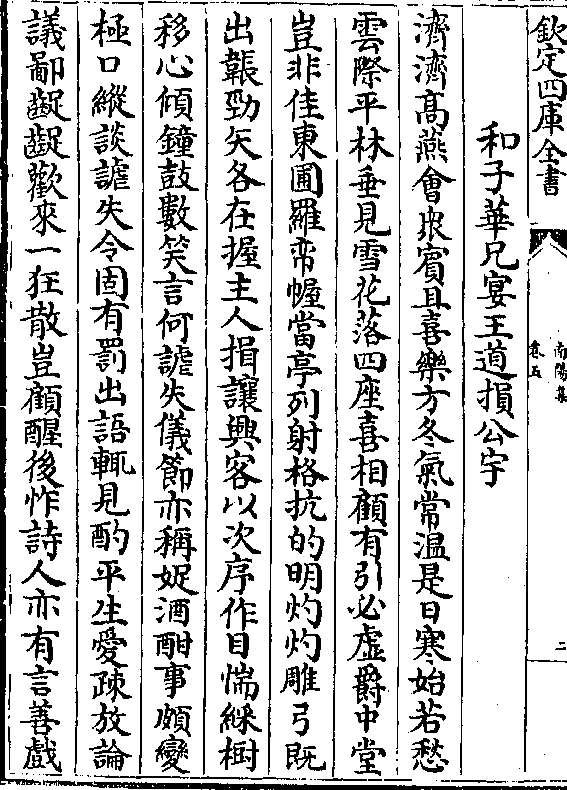 欽定四庫全書
南陽集
卷五
二
和子華兄宴王道損公宇
濟濟高燕會衆賓且喜樂方冬氣常温是日寒始若愁
雲際平林垂見雪花落四座喜相顧有引必虛爵中堂
豈非佳東圃羅帟幄當亭列射格抗的明灼灼雕弓既
出韔勁矢各在握主人揖讓興客以次序作目惴綵楅
移心傾鐘鼓數笑言何謔失儀節亦稱娖酒酣事頗變
極口縱談謔失令固有罰出語輒見酌平生愛疎放論
議鄙齪齪歡來一狂散豈顧醒後怍詩人亦有言善戲